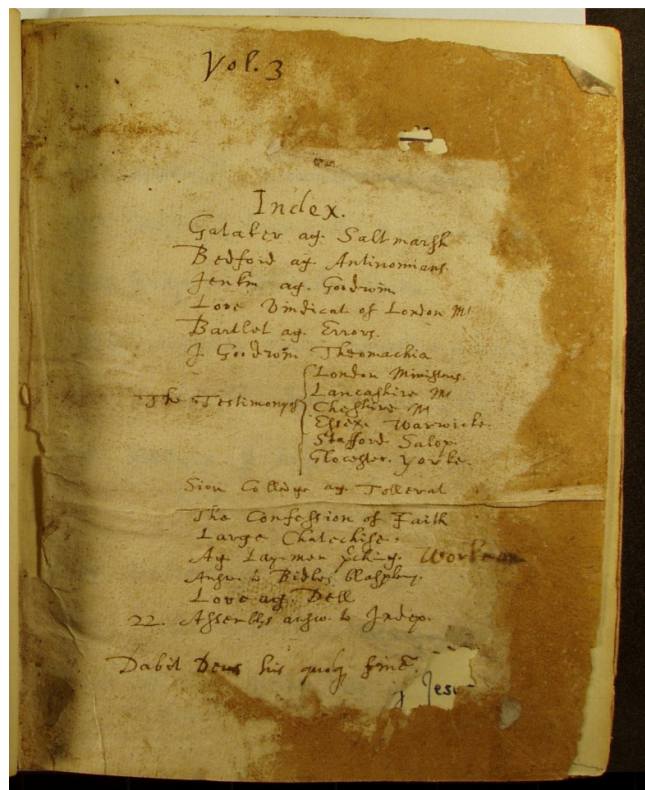 Vol. 3
Index.
Gataker ag. Saltmarsh
Bedford ag. Antinomians.
Jenkin ag. Goodwin
Love Vindicat of London Mrs
Bartlet ag. Errors.
J. Goodwin Theomachia
London Ministers.
Lancashire Mrs
The Testimonyes Cheshire Mrs
Essex. Warwicke.
Stafford Salop.
Glocester. Yorke.
Sion Colledge ag. Tollerat
The Confession of Faith
Large Chatechise.
Ag Lay-men pching. Workman
Answ. to Bidles blasphemy.
Love ag. Dell
22. Assemblys answ. to Indep.
Dabit Deus his quoq finē.
Jesu